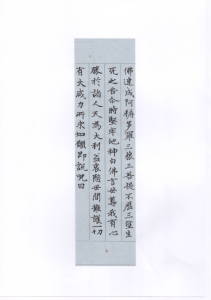 佛速成阿耨多羅三藐三菩提不歷三塗生
死之苦尒時堅牢地神白佛言世尊我有心
勝於諸人天為大利益哀愍世間擁護一切
有大威力所求如願即說咒曰